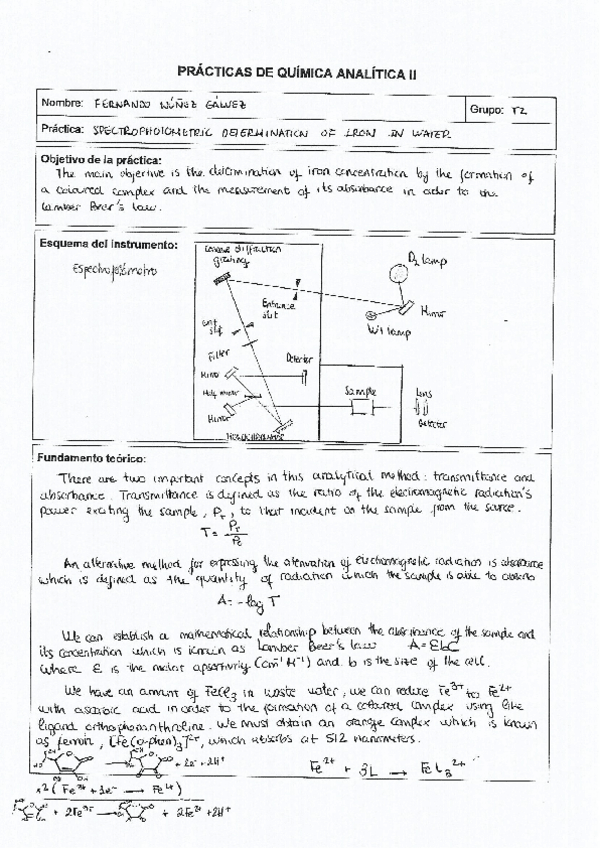 PRÁCTICAS DE QUÍMICA ANALÍTICA II
Nombre: FERNANDO NÚÑEZ GÁLVEZ
Grupo: T2
Práctica: SPECTROPHOTOMETRIC DETERMINATION OF IRON IN WATER
Objetivo de la práctica:
The main objective is the determination of iron concentration by the formation of
a coloured complex and the measurement of its absorbance in order to the
Lamber Beer's law.
Esquema del instrumento:
Espectrofotómetro
diffraction
grating
Entrance
slit
Exit
slit
Filter
Mirror
Half mirror
Mirror
Detector
D2 lamp
Mirror
WI lamp
Sample
Lens
Detector
Fundamento teórico:
There are two important concepts in this analytical method: transmittance and
absorbance. Transmittance is defined as the ratio of the electromagnetic radiation's
power exciting the sample, PT, to that incident on the sample from the source.
T = PT
An alternative method for expressing the attenuation of electromagnetic radiation is absorbance
which is defined as the quantity of radiation which the sample is able to absorb
A = -log T
We can establish a mathematical relationship between the absorbance of the sample and
its concentration which is known as Lamber Beer's law A = εbC
where ε is the molar (cm⁻¹ M⁻¹) and b is the size of the cell.
We have an amount of FeCl3 in waste water, we can reduce Fe3+ to Fe2+
with ascorbic acid in order to the formation of a coloured complex using like
ligand orthophenanthroline. We must obtain an orange complex which is known
as ferroin, [Fe(o-phen)3]2+, which absorbs at 512 nanometers.
+ 2e- + 2H+
Fe2+ + 3L → FeL3 2+
x2 (Fe3+ + 1e- → Fe2+)
+ 2Fe3+ → + 2Fe2+ + 2H+